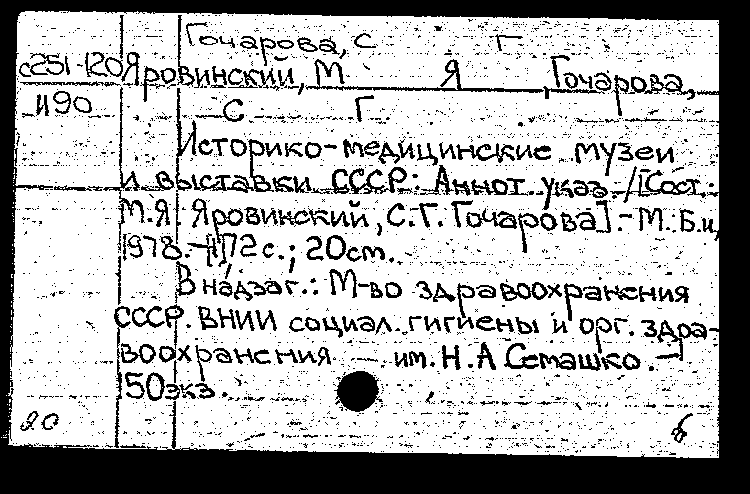 Гочарова, С Г
с251-120 Яровинский, М Я ,Гочарова,
И90 С Г
Историко-медицинские музеи
и выставки СССР: Аннот. указ./[Сост.:
М.Я. Яровинский, С.Г. Гочарова].- М. Б.и,
1978.- 172 с.; 20 см.
В надзаг.: М-во здравоохранения
СССР. ВНИИ социал. гигиены и орг. здра-
воохранения им. Н.А Семашко. -
150 экз.
20 б